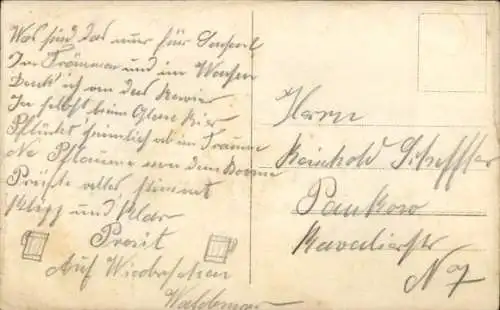 Was sind das nur für
Im Träumen und im Wachen
Denk' ich an das Revier
Ja selbst beim Glase Bier
Pflückt' heimlich ab im Traume
Ne Pflaume von dem Baume
Prüfte alles stimmt
klipp und klar
Prosit
Auf Wiedersehen
Waldemar
Herrn
Reinhold Scheffler
Pankow
Kavalierstr
N 7